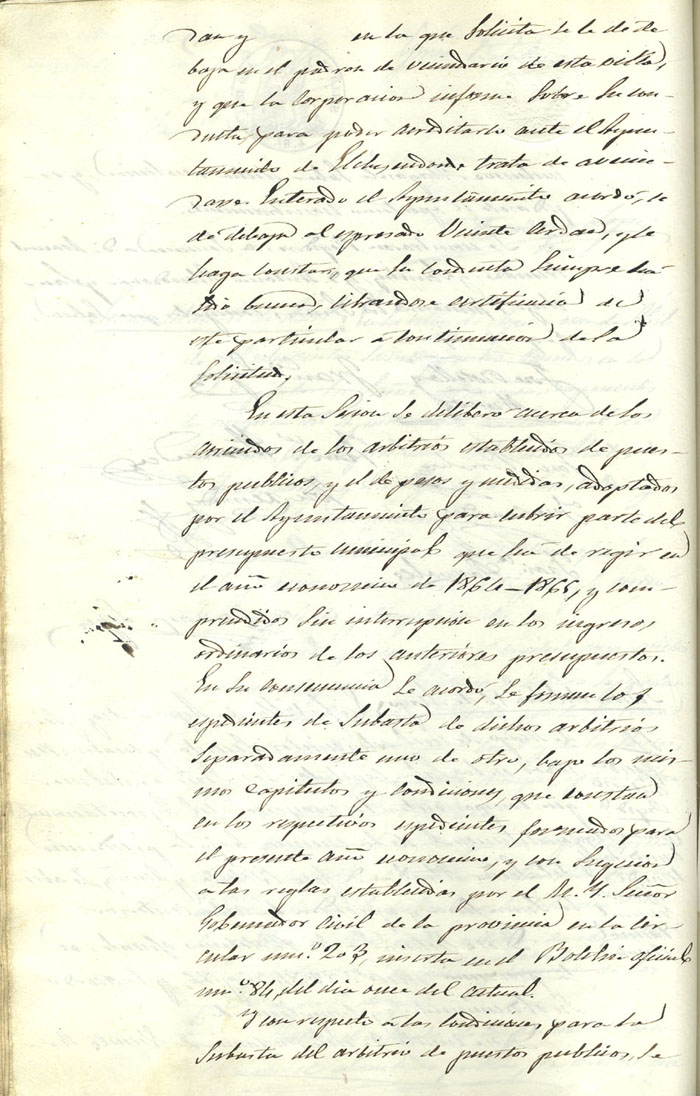 dan y en la que solicita se le dé de
baja en el padron de vecindario de esta villa,
y que la Corporacion informe sobre su con-
ducta para poder acreditarlo ante el Ayun-
tamiento de Elche, donde trata de avecin-
darse. Enterado el Ayuntamiento acordó, se
dé de baja al espresado Vicente y se
haga constar, que su conducta siempre ha
sido buena, librandose certificacion de
este particular a continuacion de la
solicitud.
En esta Sesion se deliberó acerca de los
arriendos de los arbitrios establecidos de pues-
tos publicos, y el de pesos y medidas, adoptados
por el Ayuntamiento para cubrir parte del
presupuesto municipal que ha de regir en
el año economico de 1864-1865, y com-
prendidos sin interrupcion en los ingresos
ordinarios de los anteriores presupuestos.
En su consecuencia se acordó, se formen los
espedientes de Subasta de dichos arbitrios
separadamente uno de otro, bajo los mis-
mos capitulos y condiciones, que constan
en los respectivos espedientes formados para
el presente año economico, y con sugecion
a las reglas establecidas por el M. Y. Señor
Gobernador Civil de la provincia en la Cir-
cular num.º 203, inserta en el Boletin oficial
num.º 84, del dia once del actual.
Y con respeto a las condiciones para la
Subasta del arbitrio de puestos publicos, se